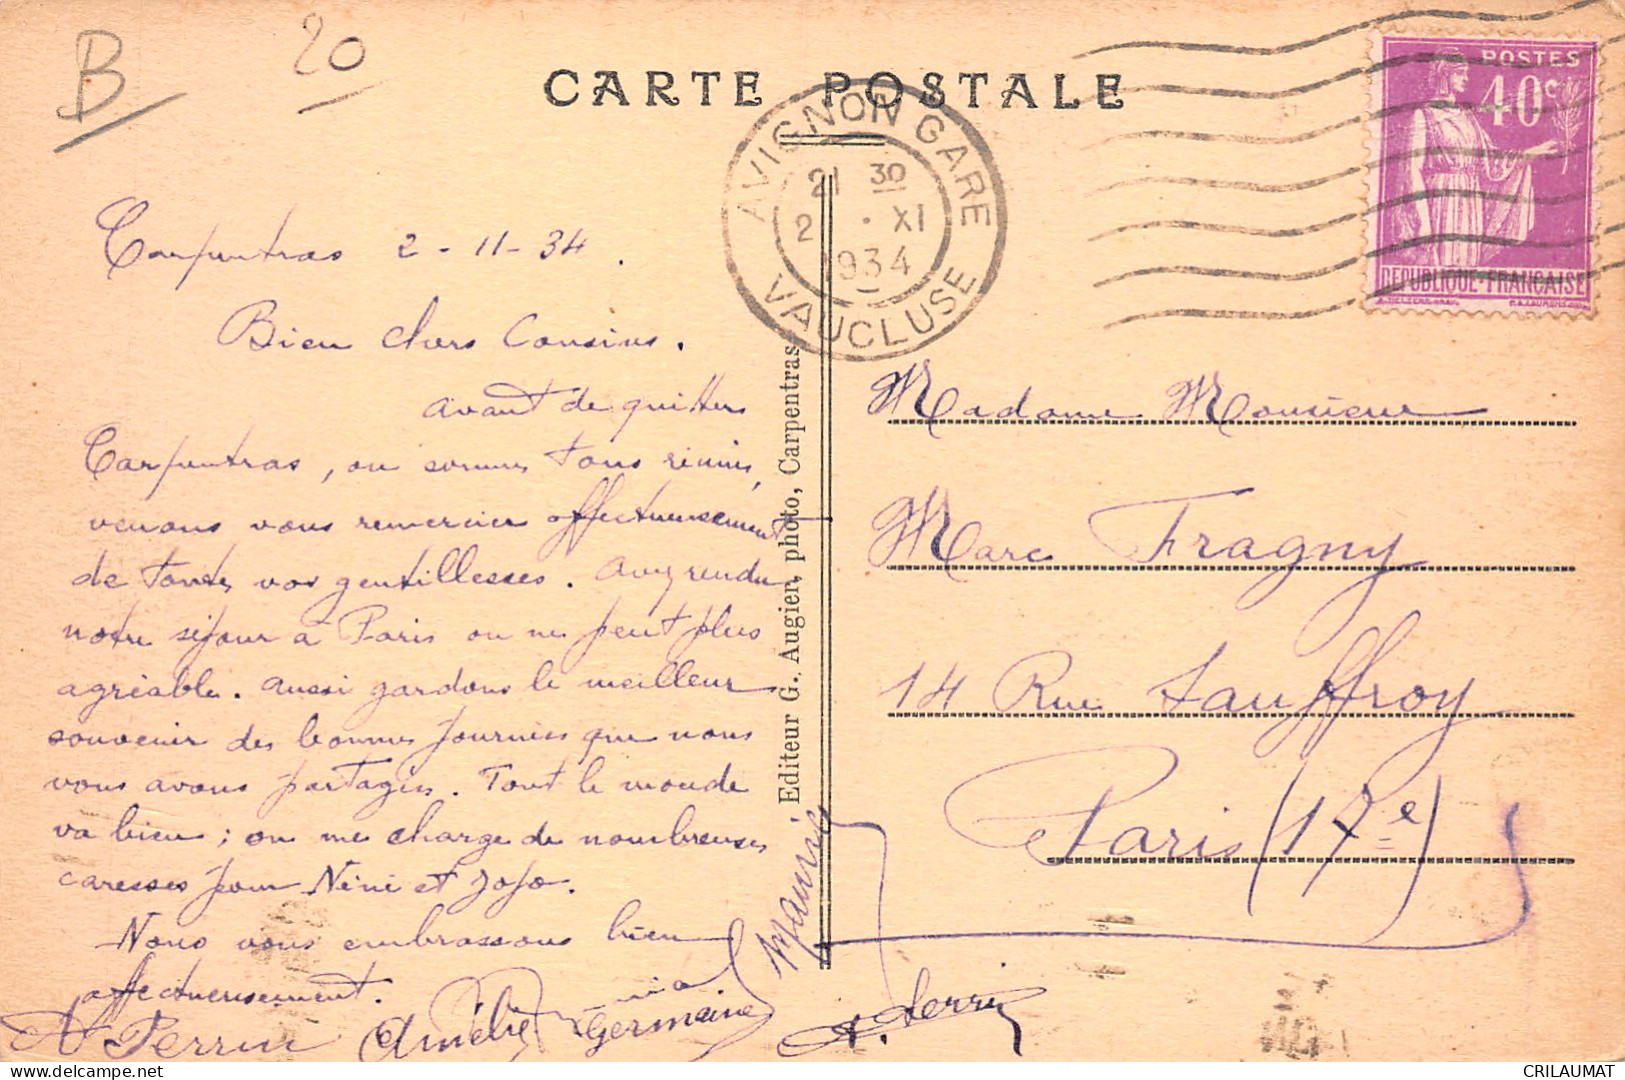 B
20
CARTE POSTALE
AVIGNON GARE
21 30
2 · XI
1934
VAUCLUSE
POSTES
40c
REPUBLIQUE-FRANÇAISE
Carpentras 2-11-34.
Bien chers Cousins.
avant de quitter
Carpentras, où sommes tous réunis,
venons vous remercier affectueusement
de toutes vos gentillesses. Avez rendu
notre séjour à Paris on ne peut plus
agréable. aussi gardons le meilleur
souvenir des bonnes journées que nous
vous avons partagées. Tout le monde
va bien ; on me charge de nombreuses
caresses pour Nini et Jojo.
Nous vous embrassons bien
affectueusement.
A Perrin Amélie Germaine
Maurice
A. Perrin
Editeur G. Augier, photo, Carpentras
Madame Monsieur
Marc Fragny
14 Rue Sauffroy
Paris (17e)
CRILAUMAT